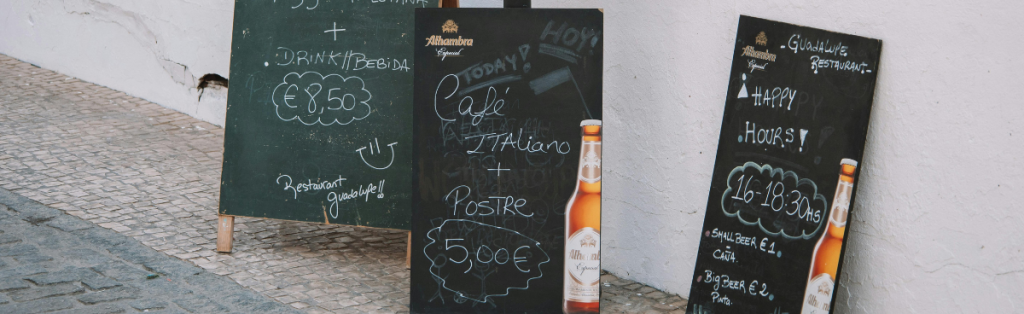 +
DRINK//BEBIDA
€8,50
Restaurant
guadalupe!!
Alhambra
Especial
TODAY!
HOY!
Café
ITALiano
+
POSTRE
5,00€
Alhambra
Especial
Alhambra
Especial
GUADALUPE
RESTAURANT-
HAPPY
HOURS!
16-18:30HS
SMALL BEER €1
CAÑA.
BIG BEER €2
Pinta.